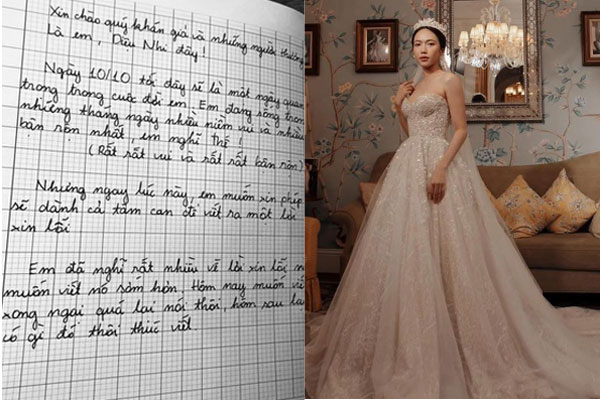 Xin chào quý khán giả và những người thương
Là em, Diệu Nhi đây!
Ngày 10/10 tới đây sẽ là một ngày quan
trọng trong cuộc đời em. Em đang sống trong
những tháng ngày nhiều niềm vui và nhiều
bận rộn nhất em nghĩ thế!
(Rất rất vui và rất rất bận rộn)
Nhưng ngay lúc này, em muốn xin phép
sẽ dành cả tâm can để viết ra một lời
xin lỗi
Em đã nghĩ rất nhiều về lời xin lỗi,
muốn viết nó sớm hơn. Hôm nay muốn viết
xong ngài quá lại nói thôi, hôm sau
có gì đó thôi thúc viết.